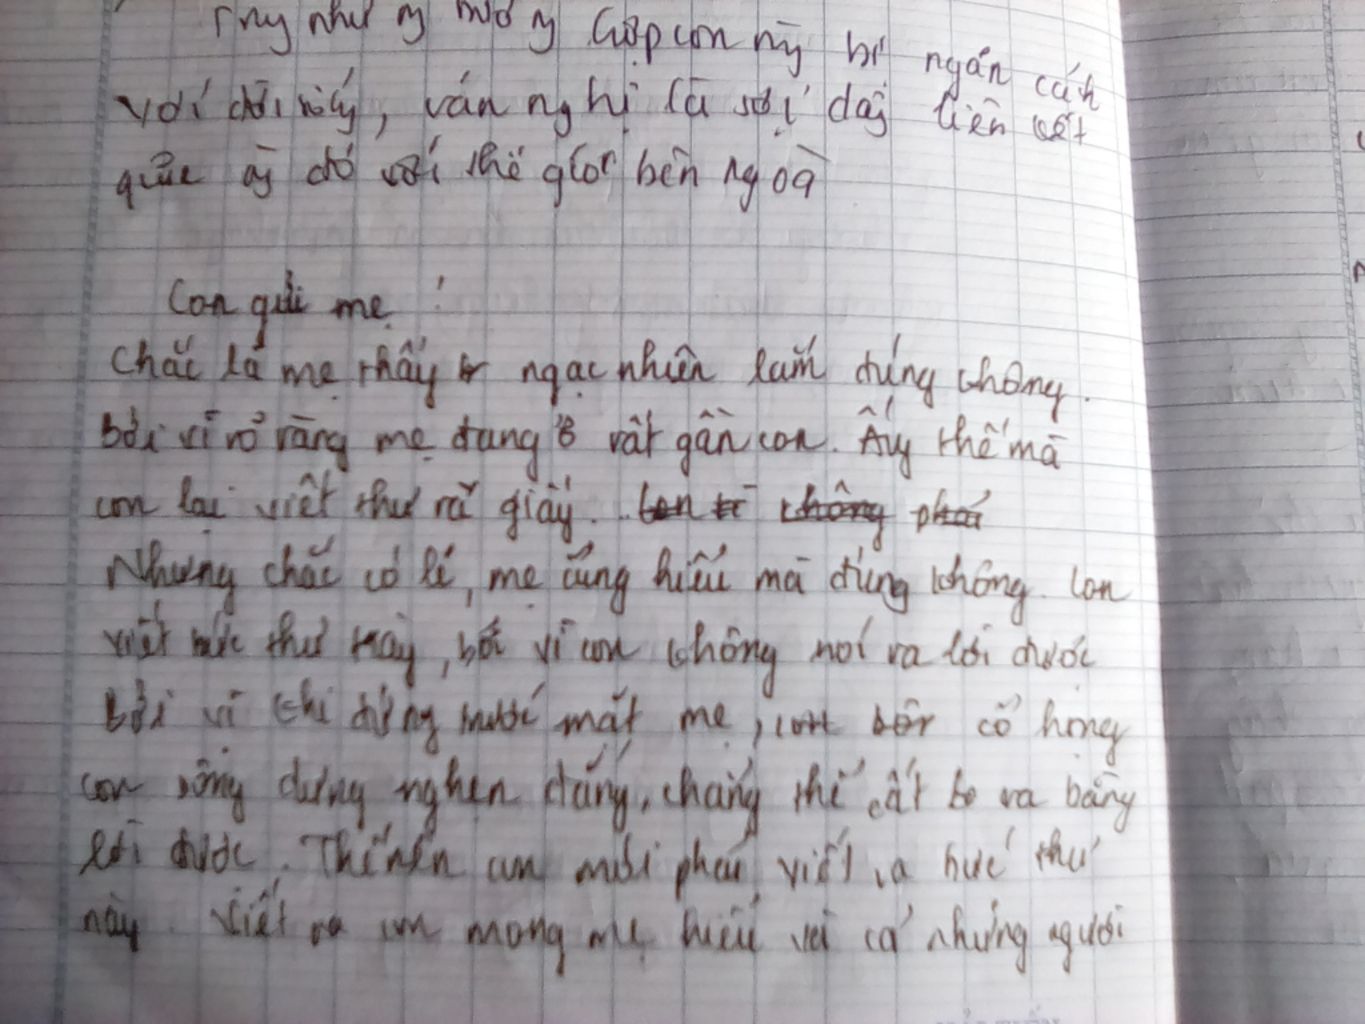 với đời
này, văn nghị là sợi dây liên kết
với thế giới bên ngoà
Con gửi mẹ !
Chắc là mẹ thấy ngạc nhiên lắm đúng không.
Bởi vì rỏ ràng mẹ đang ở rất gần con. Ấy thế mà
con lại viết thư ra giấy. không phải
Nhưng chắc có lẽ, mẹ cũng hiểu mà đúng không. Con
viết bức thư này, bởi vì con không nói ra lời được
Bởi vì khi đứng trước mặt mẹ, cổ họng
con bổng dưng nghẹn đắng, chẳng thể cất ra bằng
lời được. Thế nên con mới phải viết ra bức thư
này. Viết ra con mong mẹ hiểu và cả những người